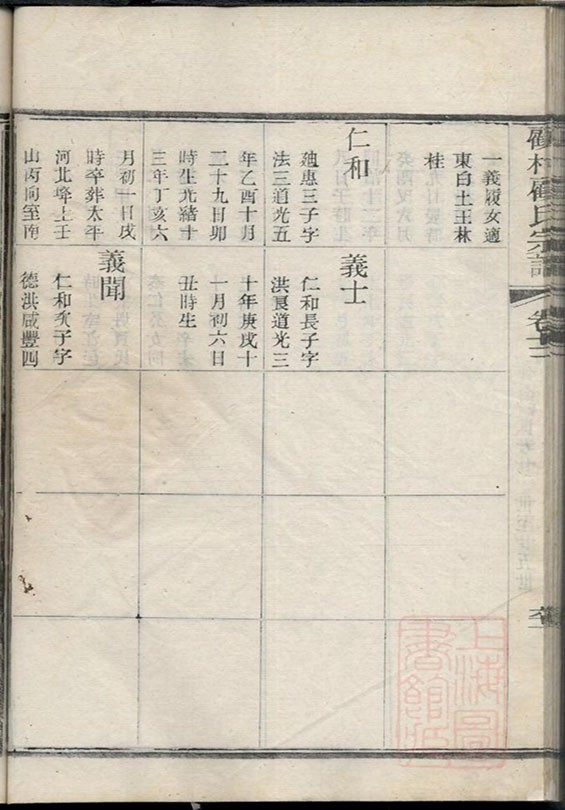 村 氏宗譜
卷十二
一義履女適
東白土王林
桂
仁和
廸惠三子字
法三道光五
年乙酉十月
二十九日卯
時生光緒十
三年丁亥六
月初一日戌
時卒葬太平
河北塝上壬
山丙向室南
義士
仁和長子字
洪良道光三
十年庚戌十
一月初六日
丑時生
義聞
仁和次子字
德洪咸豐四
上海圖
書館